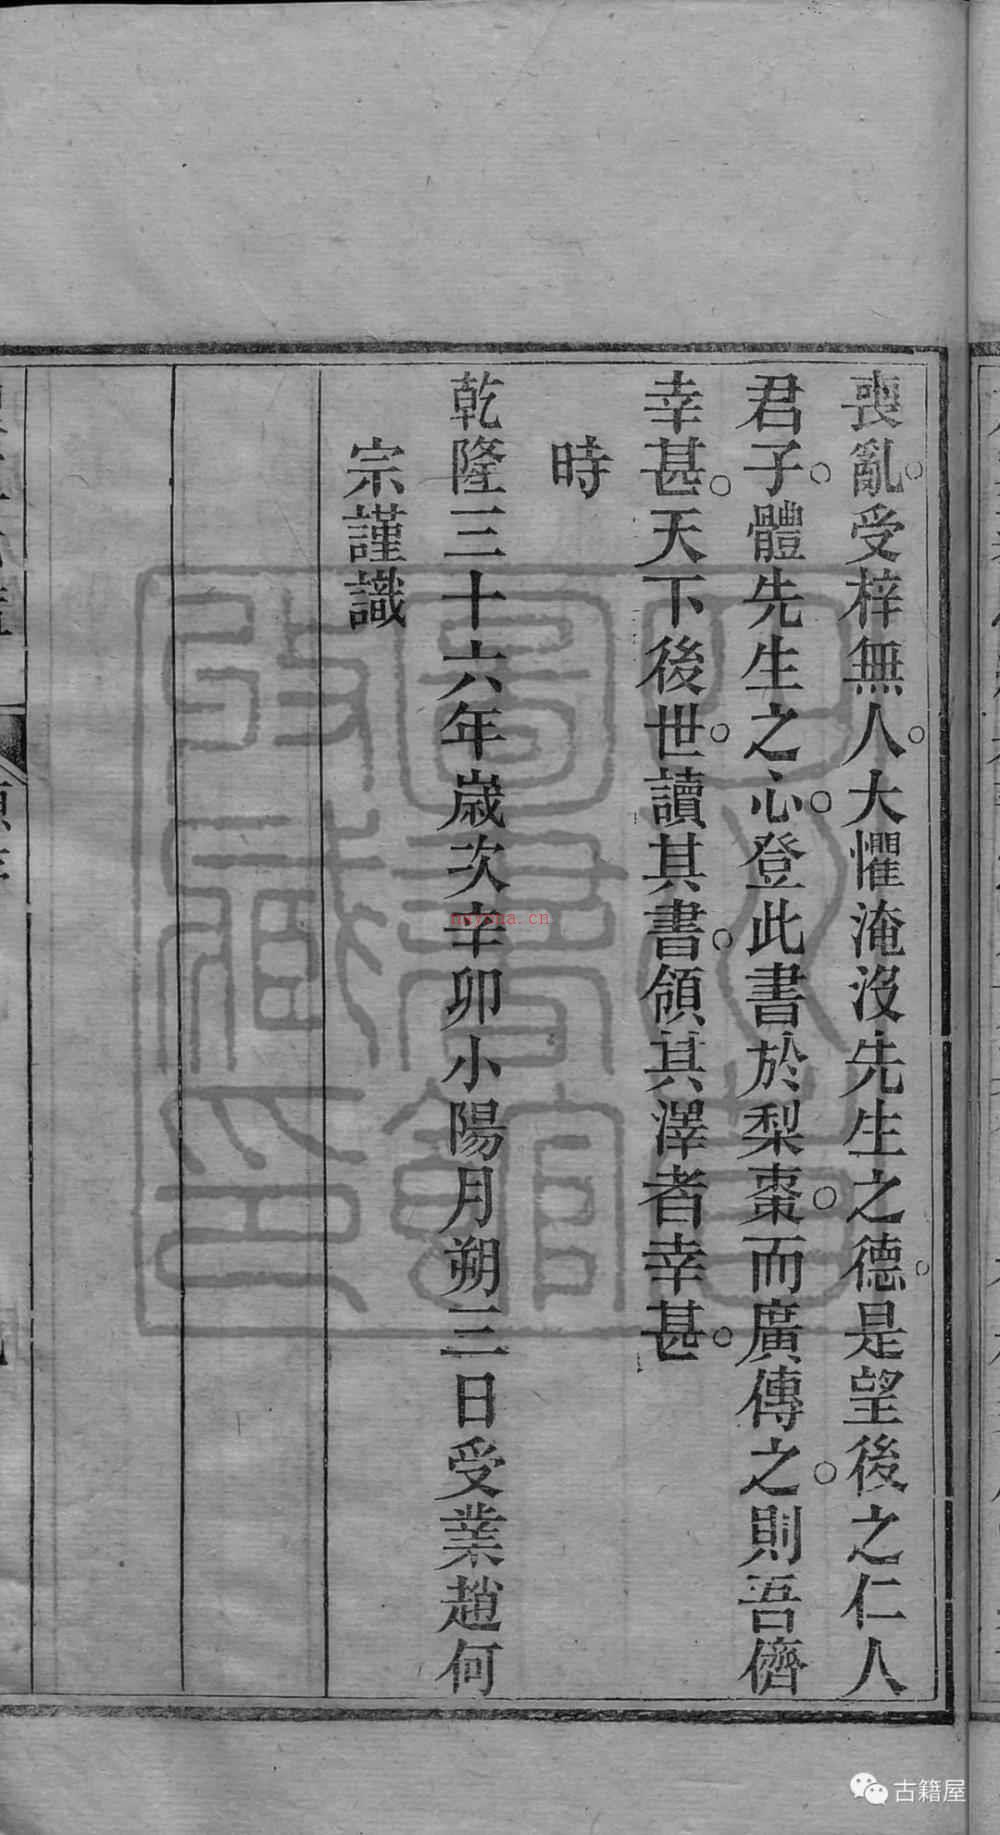 喪亂受梓無人大懼淹沒先生之德是望後之仁人
君子體先生之心登此書於梨棗而廣傳之則吾儕
幸甚天下後世讀其書領其澤者幸甚
時
乾隆三十六年歲次辛卯小陽月朔三日受業趙何
宗謹識
圖書館藏印
古籍屋